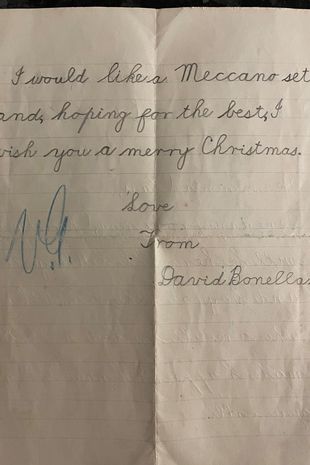 I would like a Meccano set
and, hoping for the best, I
wish you a merry Christmas.
Love
From
David Bonella.
V.G.